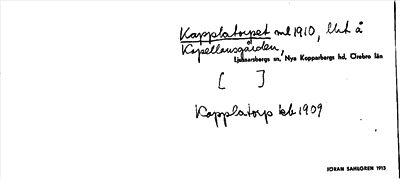 Kapplatorpet ml 1910, Utt å
Kapellansgården,
Ljusnarsbergs sn, Nya Kopparbergs hd, Örebro län
[ ]
Kapplatorp kb 1909
JÖRAN SAHLGREN 1913